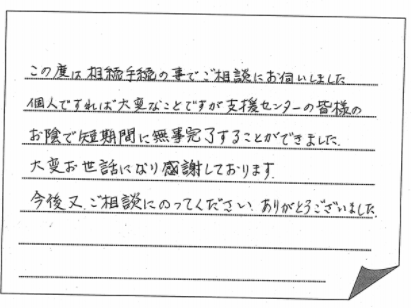 この度は相続手続の事でご相談にお伺いしました
個人ですれば大変なことですが支援センターの皆様の
お陰で短期間に無事完了することができました.
大変お世話になり感謝しております.
今後又、ご相談にのってください、ありがとうございました.